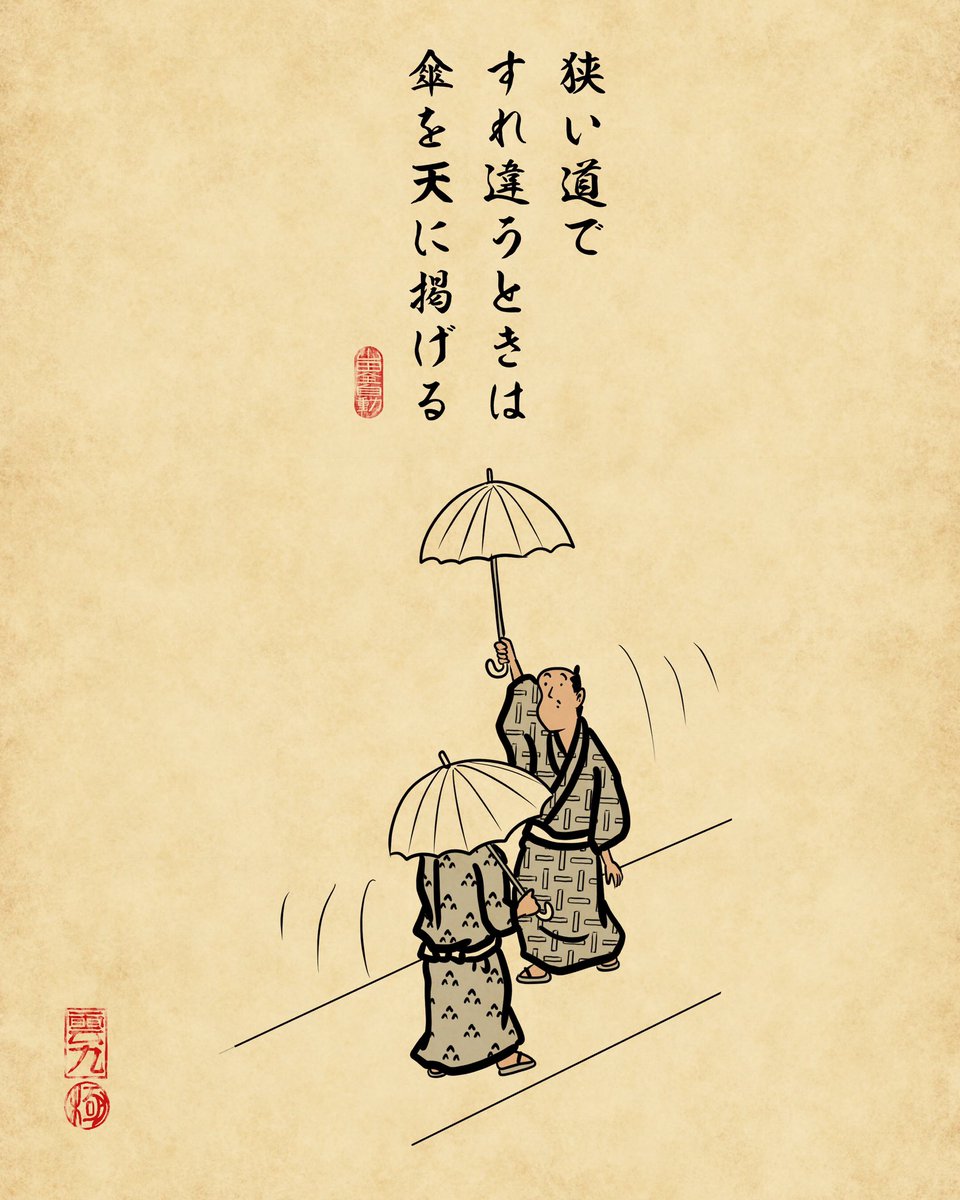 狭い道で
すれ違うときは
傘を天に掲げる